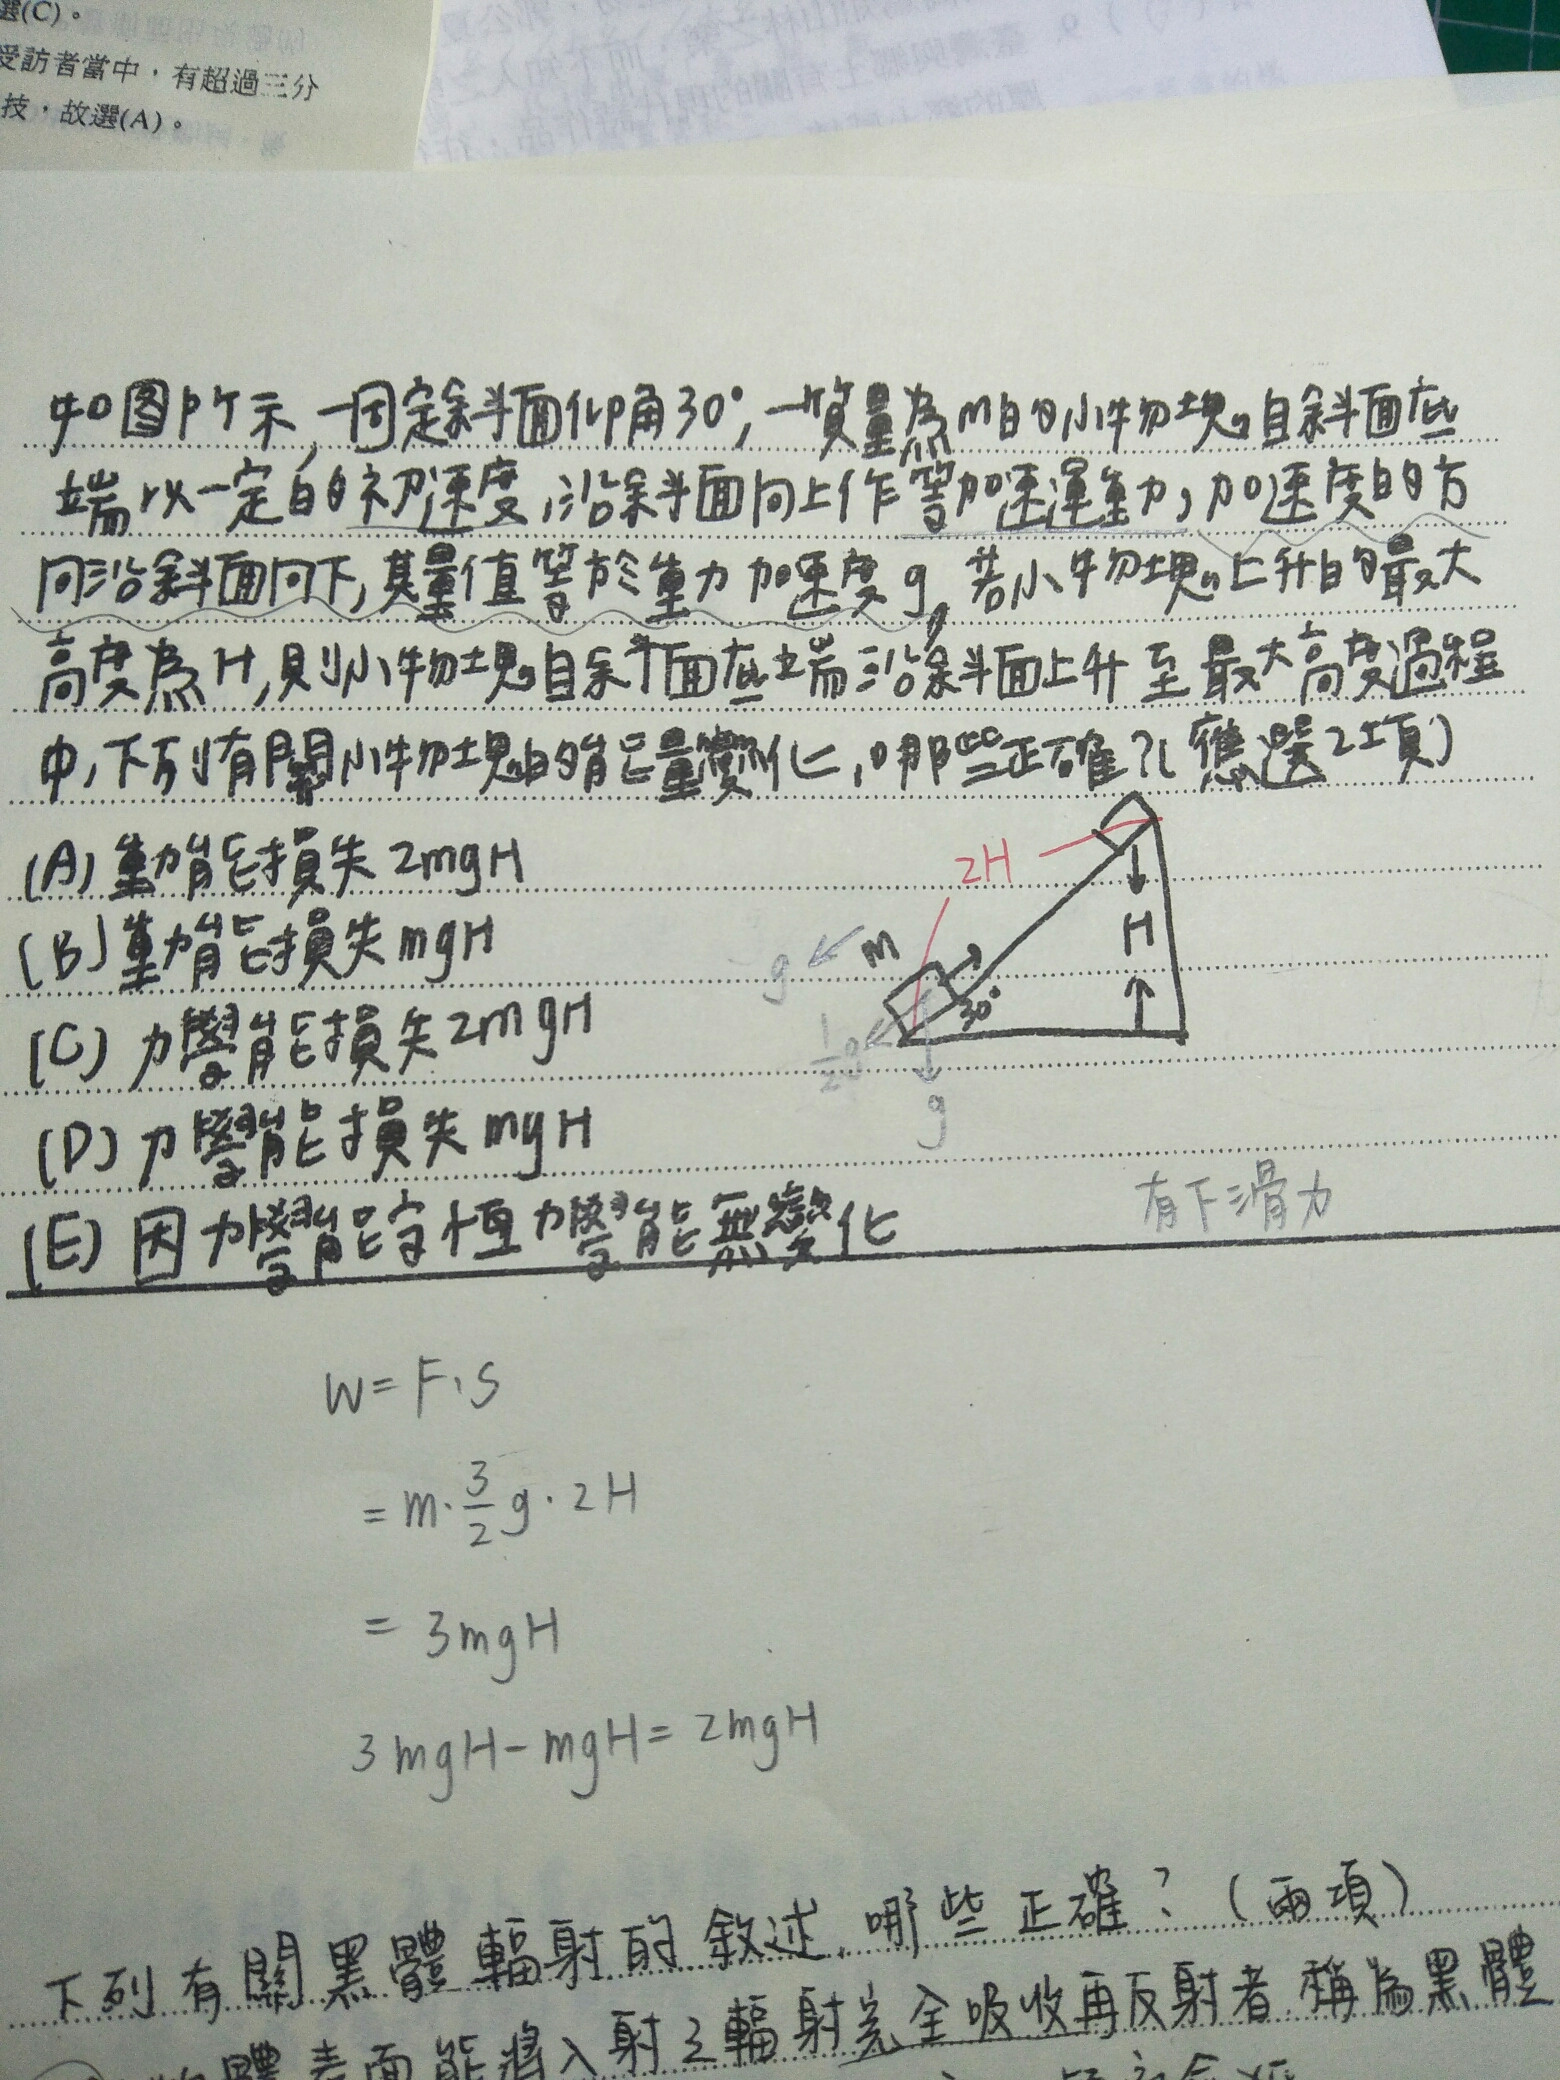 選(C)。
受訪者當中，有超過三分
技，故選(A)。
如图所示,一固定斜面仰角30°,一質量為m的小物塊自斜面底
端以一定的初速度,沿斜面向上作等加速運動,加速度的方
向沿斜面向下,其量值等於重力加速度g,若小物塊上升的最大
高度為H,則小物塊自斜面底端沿斜面上升至最大高度過程
中,下列有關小物塊的能量變化,哪些正確?(應選2項)
(A)動能損失2mgH
(B)動能損失mgH
(C)力學能損失2mgH
(D)力學能損失mgH
(E)因力學能守恆力學能無變化
2H
H
m
g
30°
1/2 g
g
有下滑力
W=F·S
=m·3/2 g·2H
=3mgH
3mgH-mgH=2mgH
下列有關黑體輻射的敘述,哪些正確?(兩項)
體表面能將入射之輻射完全吸收再反射者,稱為黑體